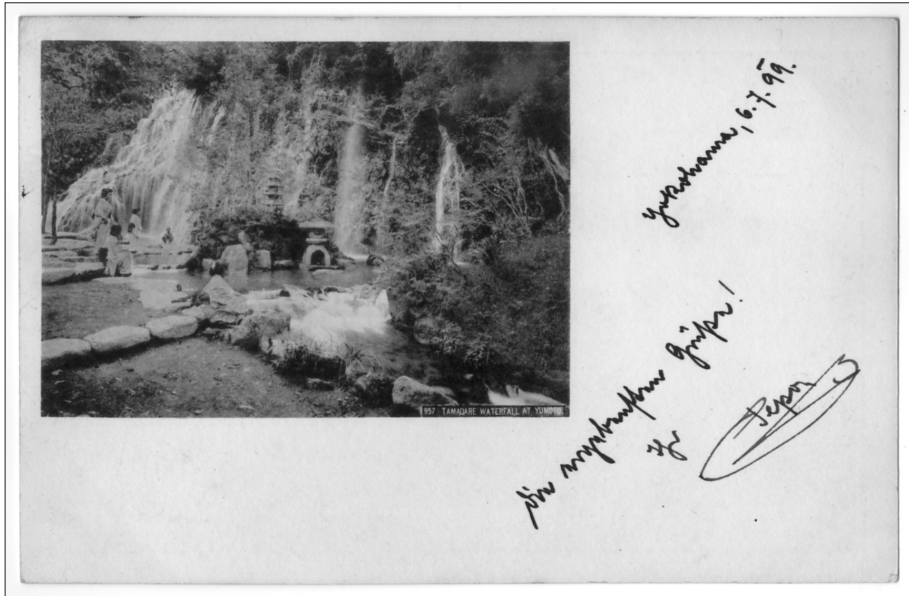 957 TAMADARE WATERFALL AT YUMOTO.
Yokohama, 6.7.99.
Die ergebensten Grüße!
Ihr